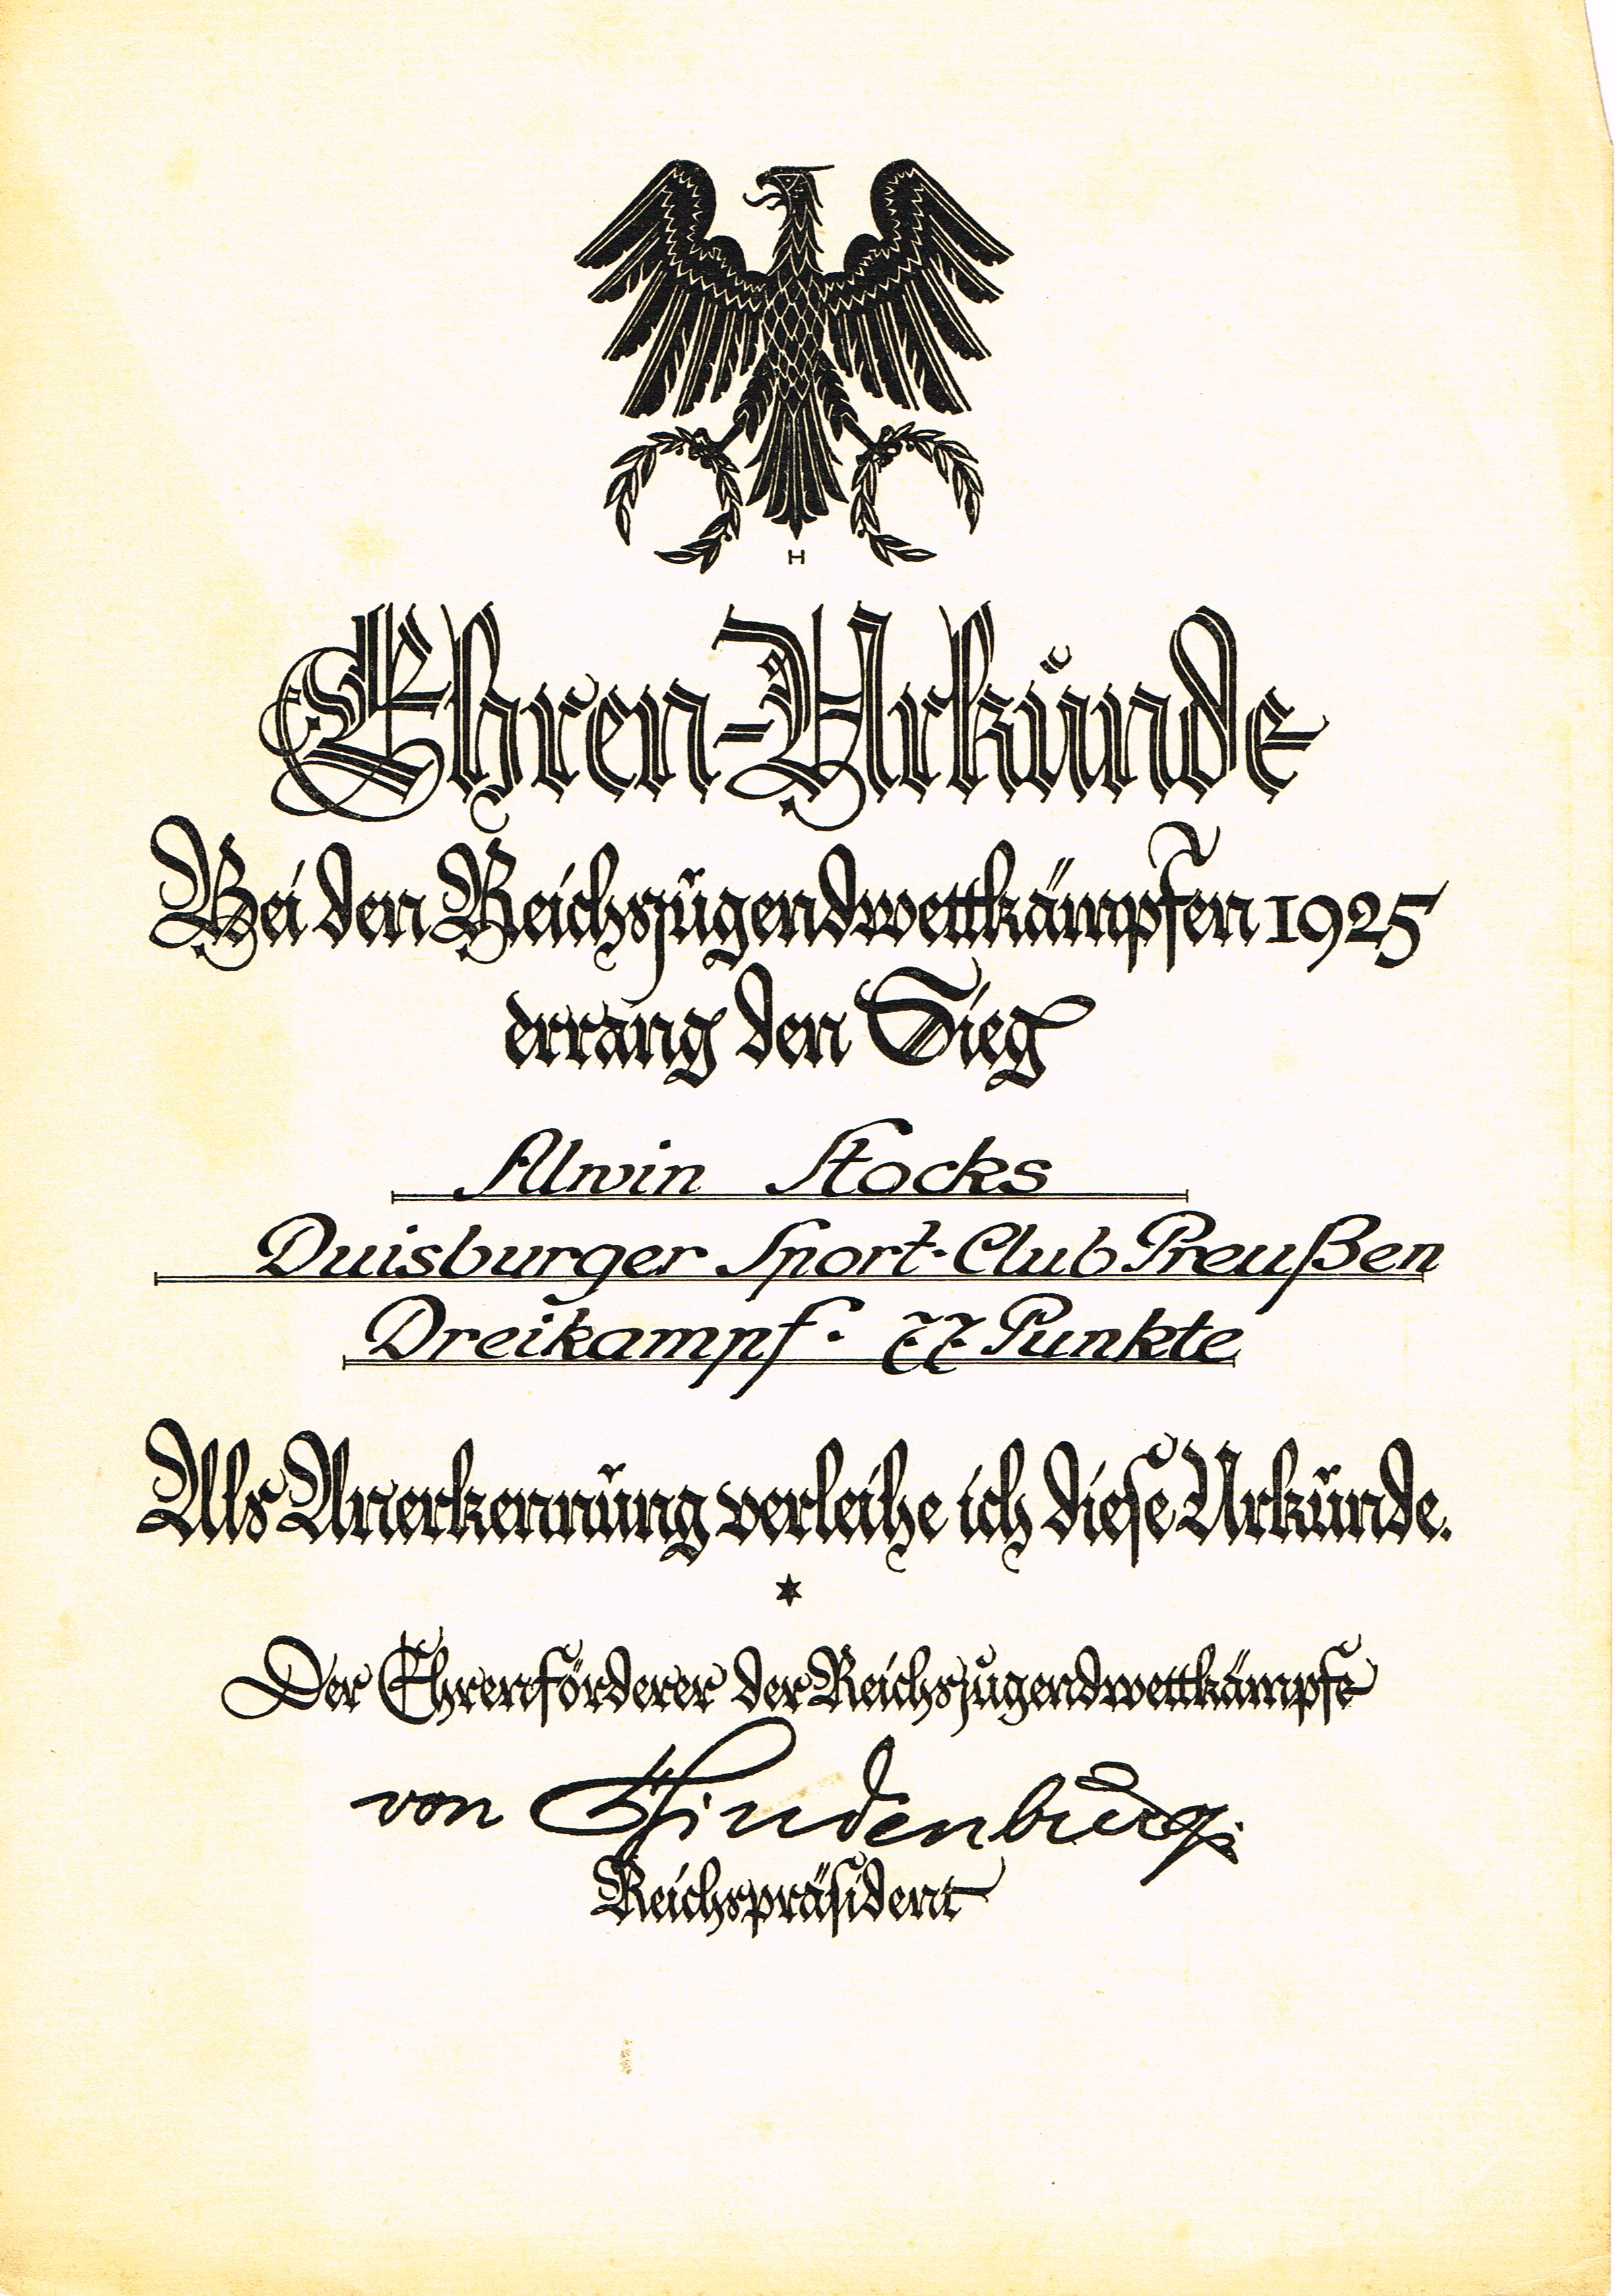 H
Ehren-Urkunde
Bei den Reichsjugendwettkämpfen 1925
errang den Sieg
Alwin Stocks
Duisburger Sport-Club Preußen
Dreikampf. 77 Punkte
Als Anerkennung verleihe ich diese Urkunde.
*
Der Ehrenförderer der Reichsjugendwettkämpfe
von Hindenburg
Reichspräsident